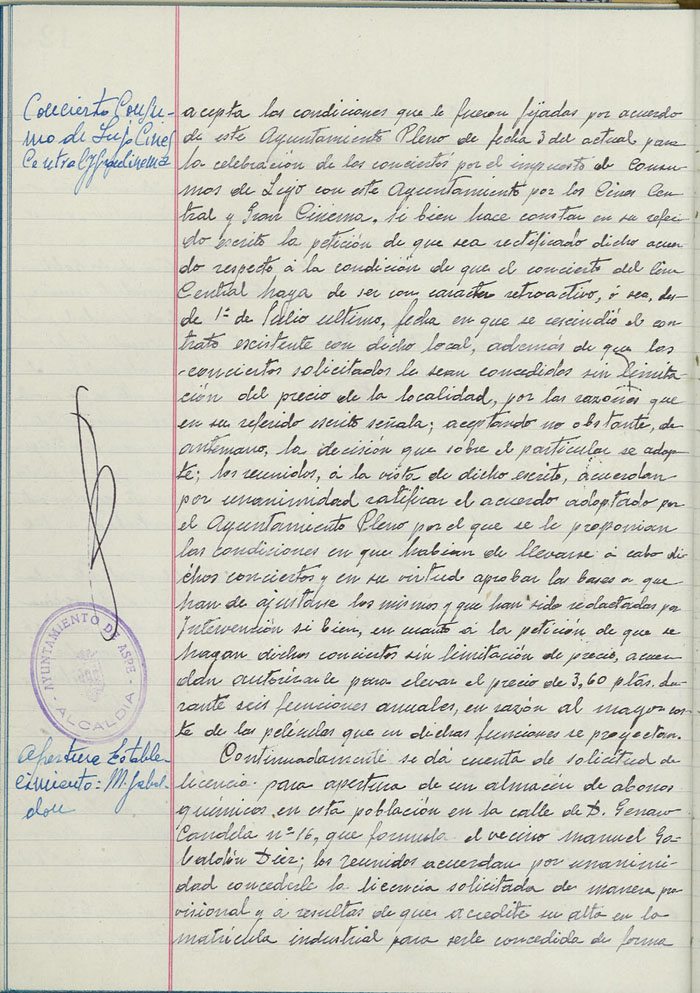 Concierto Consu-
mo de Lujo Cines
Central y Gran Cinema
acepta las condiciones que le fueron fijadas por acuerdo
de este Ayuntamiento Pleno de fecha 3 del actual para
la celebración de los conciertos por el impuesto de Consu-
mos de Lujo con este Ayuntamiento por los Cines Cen-
tral y Gran Cinema, si bien hace constar en su referi-
do escrito la petición de que sea rectificado dicho acuer-
do respecto á la condición de que el concierto del Cine
Central haya de ser con caracter retroactivo, ó sea, des-
de 1º de Julio ultimo, fecha en que se rescindió el con-
trato escistente con dicho local, además de que los
conciertos solicitados le sean concedidos sin limita-
ción del precio de la localidad, por las razones que
en su referido escrito señala; aceptando no obstante, de
antemano, la decisión que sobre el particular se adop-
te; los reunidos, á la vista de dicho escrito, acuerdan
por unanimidad ratificar el acuerdo adoptado por
el Ayuntamiento Pleno por el que se le proponian
las condiciones en que habian de llevarse á cabo di-
chos conciertos y en su virtud aprobar las bases a que
han de ajustarse los mismos y que han sido redactadas por
Intervención si bien, en cuanto á la petición de que se
hagan dichos conciertos sin limitación de precio, acuer-
dan autorizarle para elevar el precio de 3,60 ptas. du-
rante seis funciones anuales, en razón al mayor cos-
te de las películas que en dichas funciones se proyectan.
AYUNTAMIENTO DE ASPE
ALCALDIA
Apertura Estable-
cimiento: M. Gabal-
don
Continuadamente se dá cuenta de solicitud de
licencia para apertura de un almacén de abonos
químicos en esta población en la calle de D. Genaro
Candela nº 16, que formula el vecino Manuel Ga-
baldón Diez; los reunidos acuerdan por unanimi-
dad concederle la licencia solicitada de manera pro-
visional y á resultas de que acredite su alta en la
matrícula industrial para serle concedida de forma